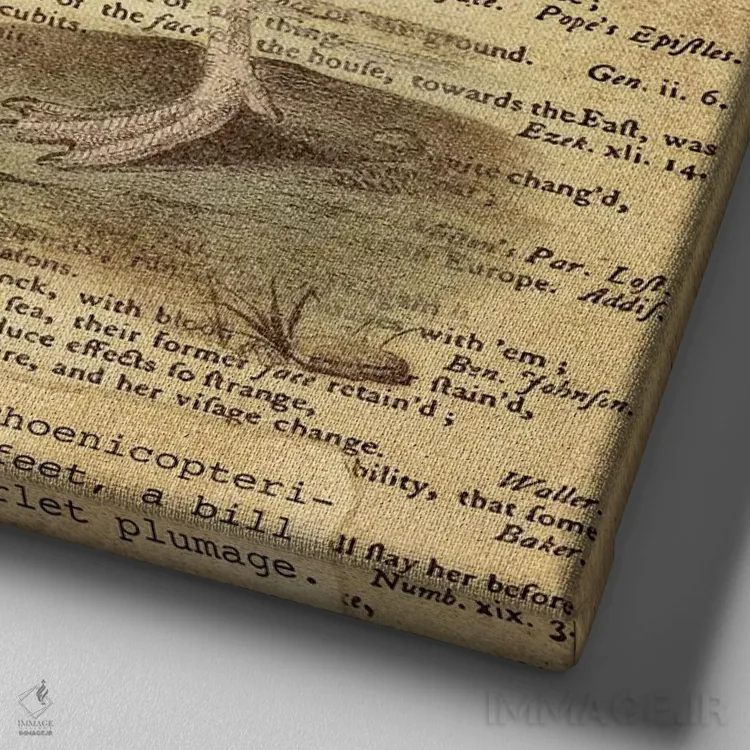 Pope's Epiſtles.
cubits. of the face of the ground.
thing. Gen. ii. 6.
the houſe, towards the Eaſt, was
Ezek. xli. 14.
chang'd,
Par. Loſt.
Europe. Addiſ.
with 'em;
ock, with blood ſtain'd,
Ben. Johnſon.
ſea, their former face retain'd;
duce effects ſo ſtrange,
re, and her viſage change.
Waller.
bility, that ſome
Baker.
hoenicopteri-
feet, a bill
flet plumage.
ll ſlay her before
Numb. xix. 3.
IMMAGE
IMMAGE.IR
IMMAGE.IR